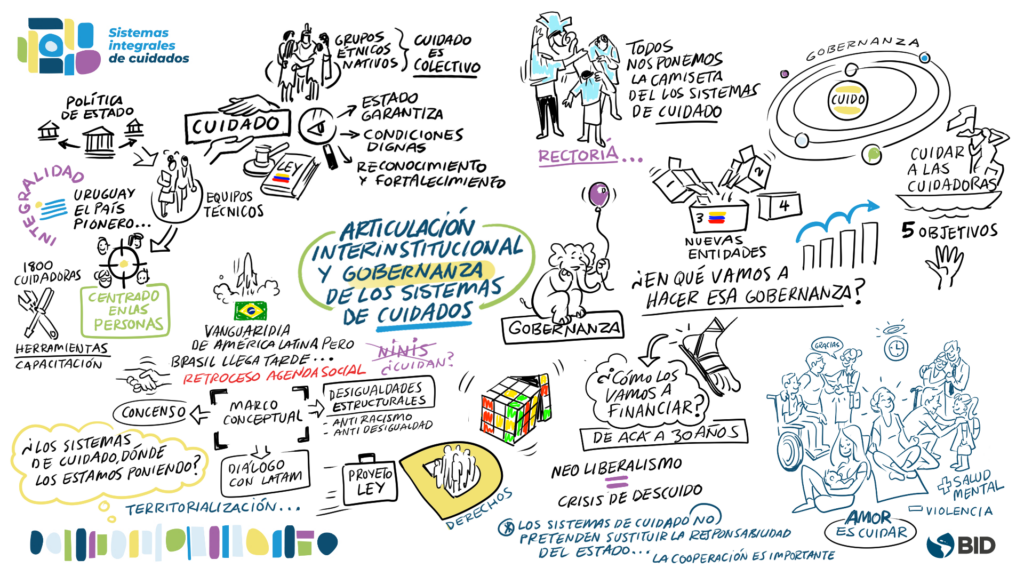 Sistemas
integrales
de cuidados
GRUPOS
ETNICOS
NATIVOS
CUIDADO
ES
COLECTIVO
POLÍTICA
DE ESTADO
CUIDADO
LEY
ESTADO
GARANTIZA
CONDICIONES
DIGNAS
RECONOCIMIENTO
Y FORTALECIMIENTO
INTEGRALIDAD
URUGUAY
EL PAÍS
PIONERO...
EQUIPOS
TÉCNICOS
1800
CUIDADORAS
CENTRADO
EN LAS
PERSONAS
HERRAMIENTAS
CAPACITACIÓN
TODOS
NOS PONEMOS
LA CAMISETA
DEL LOS SISTEMAS
DE CUIDADO
RECTORIÁ...
GOBERNANZA
CUIDO
CUIDAR
A LAS
CUIDADORAS
2
3
4
NUEVAS
ENTIDADES
5 OBJETIVOS
ARTICULACIÓN
INTERINSTITUCIONAL
Y GOBERNANZA
DE LOS SISTEMAS
DE CUIDADOS
GOBERNANZA
¿EN QUÉ VAMOS A
HACER ESA GOBERNANZA?
VANGUARIDIA
DE AMÉRICA LATINA PERO
BRASIL LLEGA TARDE...
RETROCESO AGENDA SOCIAL
NINIS
¿CUIDAN?
CONCENSO
MARCO
CONCEPTUAL
DESIGUALDADES
ESTRUCTURALES
- ANTI RACISMO
- ANTI DESIGUALDAD
DIÁLOGO
CON LATAM
¿LOS SISTEMAS
DE CUIDADO, DÓNDE
LOS ESTAMOS PONIENDO?
TERRITORIALIZACIÓN...
PROYETO
LEY
DERECHOS
¿CÓMO LOS
VAMOS A
FINANCIAR?
DE ACÁ A 30 AÑOS
NEO LIBERALISMO
=
CRISIS DE DESCUIDO
LOS SISTEMAS DE CUIDADO NO
PRETENDEN SUSTITUIR LA RESPONSABILIDAD
DEL ESTADO...
LA COOPERACIÓN ES IMPORTANTE
GRACIAS
+ SALUD
MENTAL
- VIOLENCIA
AMOR
ES CUIDAR
BID